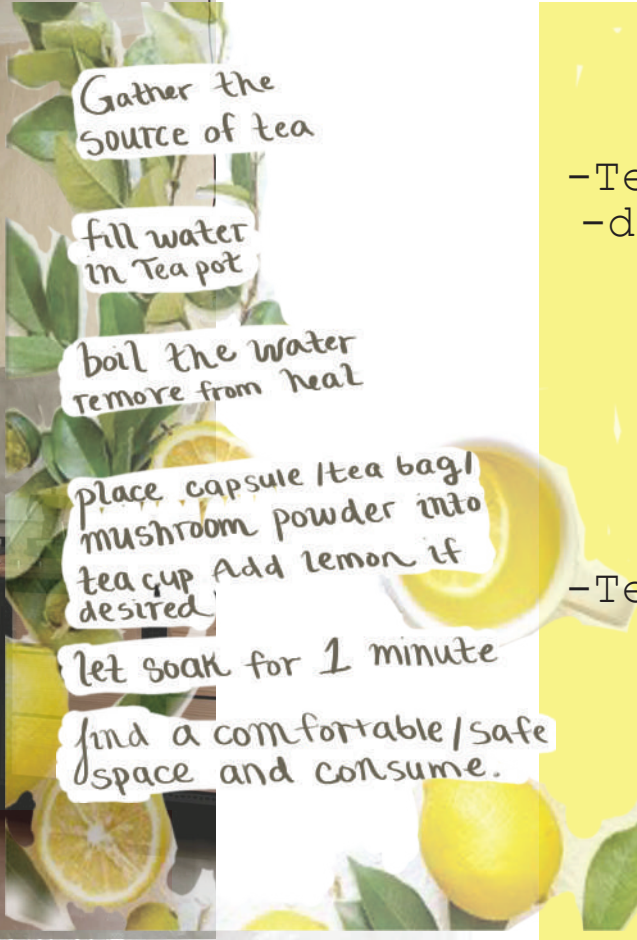 Gather the
source of tea
fill water
in Tea pot
boil the water
remove from heat
place capsule/tea bag/
mushroom powder into
tea cup Add lemon if
desired
let soak for 1 minute
find a comfortable/safe
space and consume.
-Te
-d
-Te